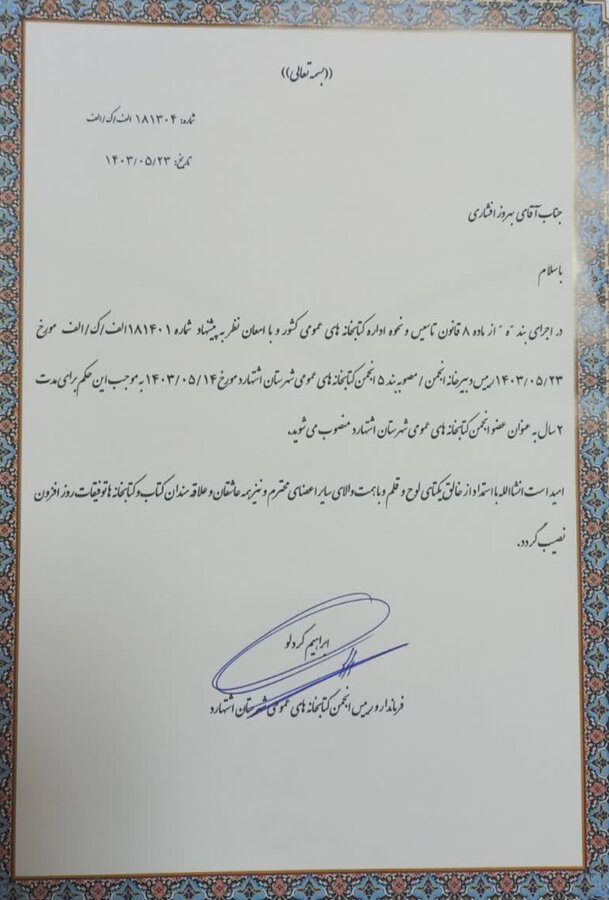 ((بسمه تعالی))
شماره: ۱۸۱۳۰۴ الف/ک/الف
تاریخ: ۱۴۰۳/۰۵/۲۳
جناب آقای بهروز افشاری
باسلام
در اجرای بند "ه" از ماده ۸ قانون تاسیس و نحوه اداره کتابخانه های عمومی کشور و با امعان نظر به پیشنهاد شماره ۱۸۱۴۰۱الف/ک/الف مورخ
۱۴۰۳/۰۵/۲۳رییس دبیرخانه انجمن / مصوبه بند ۵ انجمن کتابخانه های عمومی شهرستان اشتهارد مورخ ۱۴۰۳/۰۵/۱۴ به موجب این حکم برای مدت
۲سال به عنوان عضو انجمن کتابخانه های عمومی شهرستان اشتهارد منصوب می شوید.
امید است انشاالله با استمداد از خالق یکتای لوح و قلم و با همت والای سایر اعضای محترم و نیز همه عاشقان و علاقه مندان کتاب و کتابخانه ها توفیقات روز افزون
نصیب گردد.
ابراهیم کردلو
فرماندار و رییس انجمن کتابخانه های عمومی شهرستان اشتهارد